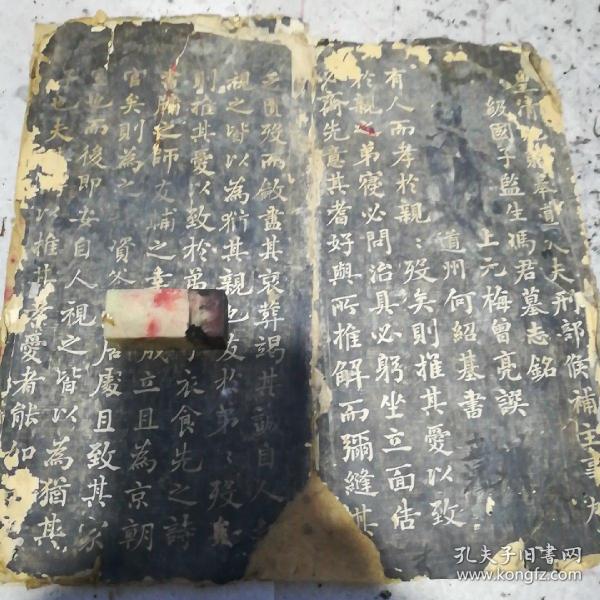 皇清
奉直
夫刑部候補主事
級國子監生馮君墓志銘
上元梅曾亮譔
道州何紹基書
有人而孝於親:歿矣則推其愛以致
於親之弟寢必問治具必躬坐立面告
齋先意其耆好與所推解而彌縫其
歿而斂盡其哀葬竭其
自人
視之皆以為猶其親也友於弟:歿
則推其愛以致於
衣食先之詩
之師友輔之
成立且為京朝
官矣則為之
資
居處且致其家
而後即安自人視之皆以為猶其
也夫
以推其孝愛者能如
孔夫子旧书网
www.kongfz.com